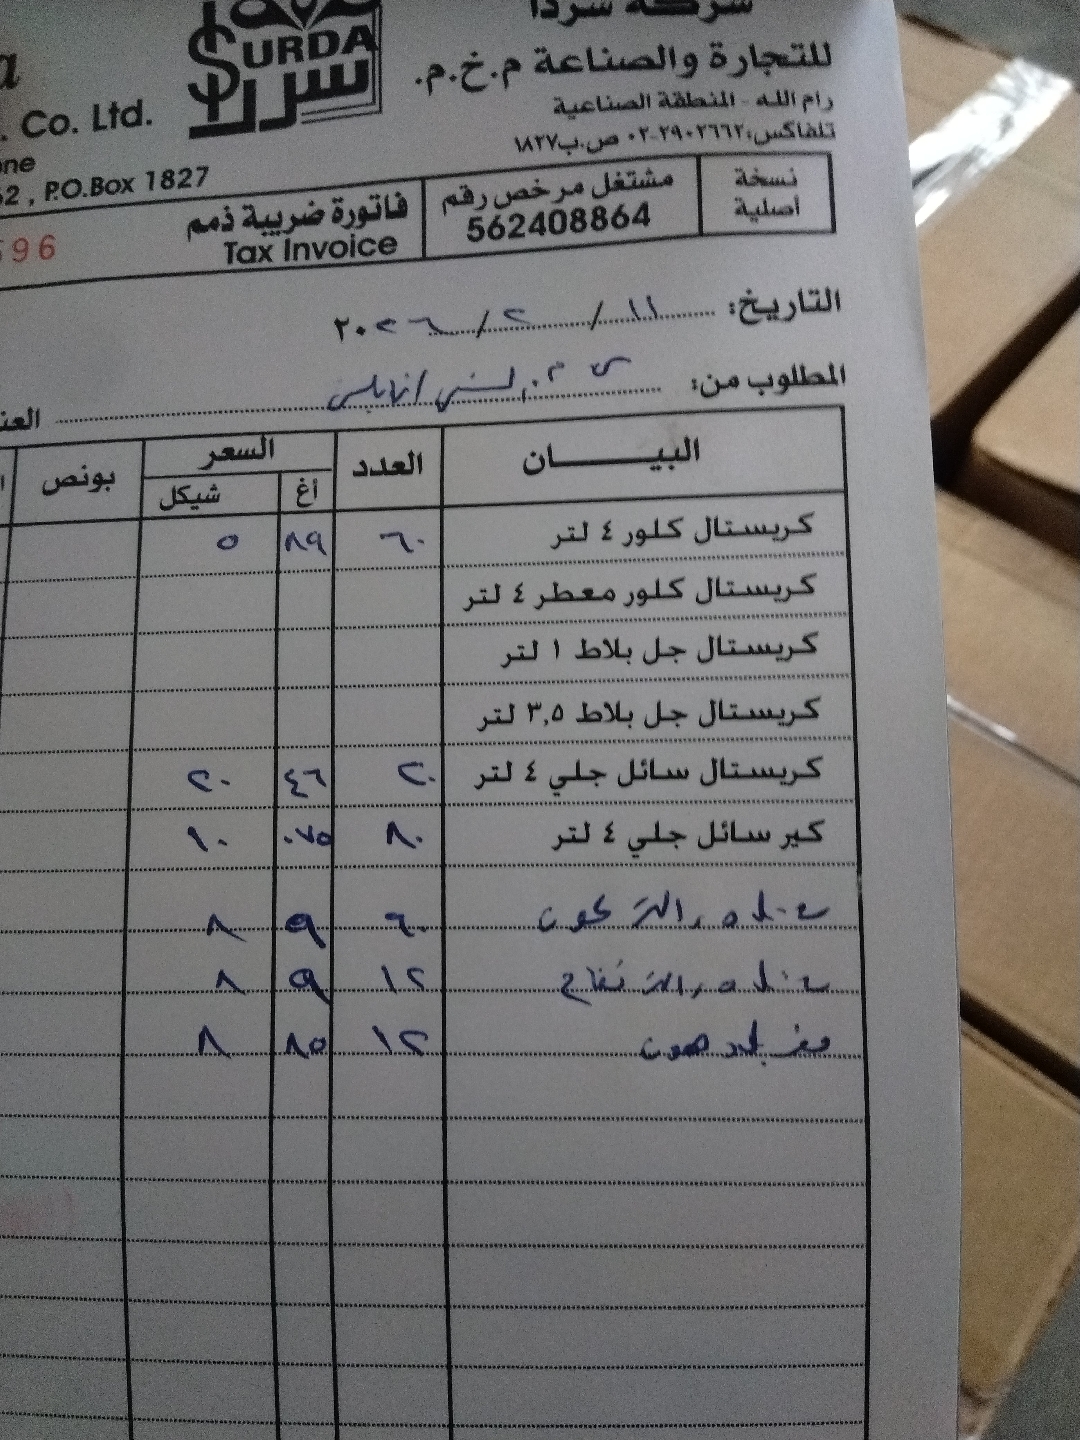 شركة سردا
SURDA
سردا
للتجارة والصناعة م.خ.م.
. Co. Ltd.
رام الله - المنطقة الصناعية
تلفاكس: ٢٩٠٢٦٦٢-٠٢ ص.ب ١٨٢٧
62 , P.O.Box 1827
نسخة أصلية
مشتغل مرخص رقم
562408864
فاتورة ضريبة ذمم
Tax Invoice
596
التاريخ: ١١ / ٢ / ٢٠٢٦
المطلوب من:
البيـــــان العدد السعر بونص
أغ شيكل
كريستال كلور ٤ لتر ٦٠ ٨٩ ٥
كريستال كلور معطر ٤ لتر
كريستال جل بلاط ١ لتر
كريستال جل بلاط ٣,٥ لتر
كريستال سائل جلي ٤ لتر ٢٠ ٤٦ ٢٠
كير سائل جلي ٤ لتر ٨٠ ٠٧٥ ١٠
٦٠ ٩ ٨
تفاح ١٢ ٩ ٨
١٢ ٨٥ ٨